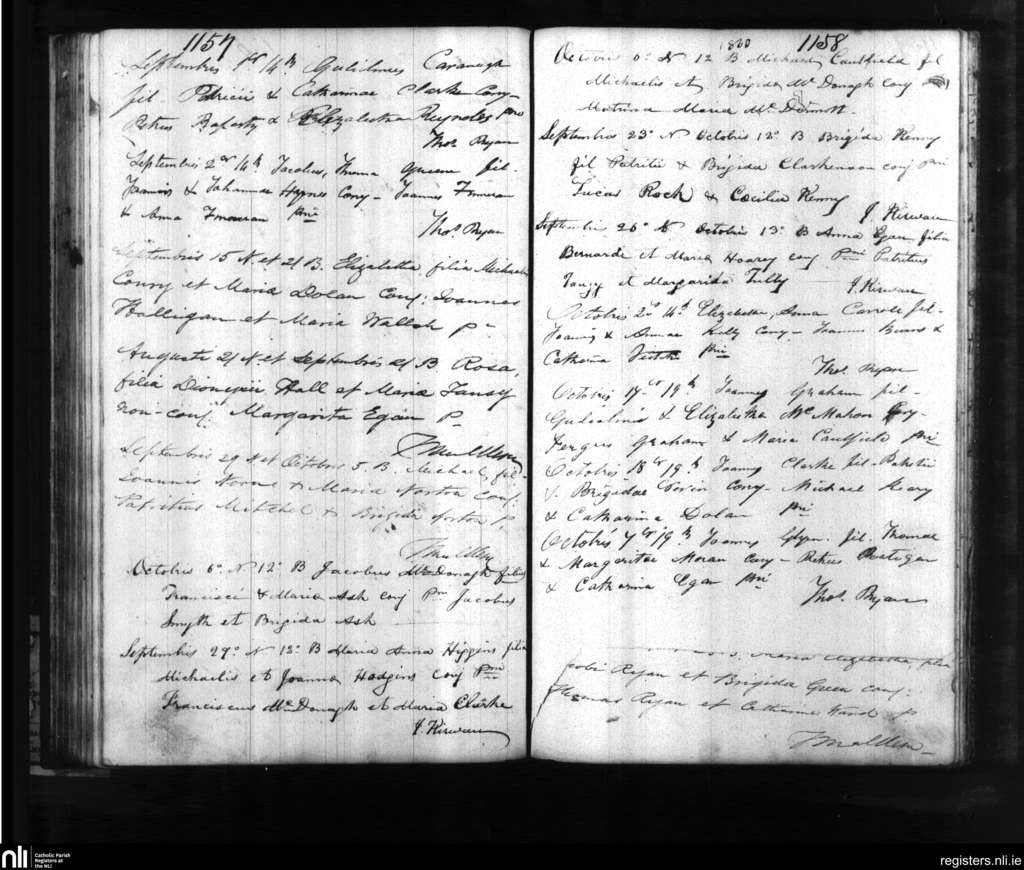 1157
Septembris 1st 14th Gulielmus Cavanagh
fil. Patricii & Catharinae Clarke Conj-
Petrus Raftery & Elizabetha Reynolds pni
Thos. Ryan
Septembris 2nd 14th Jacobus, Thoma Queen fil.
Joannis & Johannae Hynes Conj- Joannes Finneran
& Anna Finneran pni
Thos. Ryan
Septembris 15 N. et 21 B. Elizabetha filia Michaelis
Conry et Maria Dolan Conj: Joannes
Halligan et Maria Wallsh p
Augusti 21 N. et Septembris 21 B. Rosa,
filia Dionysii Hall et Maria
non-conj. Margarita Egan P
Septembris 29 N et Octobris 5. B. Michael, fil-
Joannis & Maria Norton Conj.
Patritius Mitchel & Brigida Norton p
Octobris 6o N 12o B Jacobus McDonagh filius
Francisci & Maria Ash conj Pni Jacobus
Smyth et Brigida Ash
Septembris 29o N 12o B Maria Anna Higgins filia
Michaelis et Joanna Hodgins conj Pni
Franciscus McDonagh et Maria Clarke
J. Kirwan
1860 1158
Octobris 6o N 12 B Michael Caulfield fil
Michaelis et Brigida McDonagh conj
Matrina Maria McDermott
Septembris 23o N Octobris 12o B Brigida Kenny
fil Patritii & Brigida Clarkenson conj Pni
Lucas Rock & Cecilia Kenny
J. Kirwan
Septembris 26o N Octobris 13o B Anna Egan filia
Bernardi et Maria Hoarey conj Pni Patritius
et Margarita Tully J. Kirwan
Octobris 2nd 14th Elizabetha, Anna Carroll fil-
Joannis & Annae Kelly Conj- Joannes Burns &
Catharina pni
Thos. Ryan
Octobris 17th 19th Joannes Graham fil-
Gulielmi & Elizabetha McMahon Conj-
Fergus Graham & Maria Caulfield pni
Octobris 18th 19th Joannes Clarke fil- Patritii
& Brigidae Conj- Michael Keary
& Catharina Dolan pni
Octobris 7th 19th Joannes Glynn fil. Thomae
& Margaritae Moran Conj- Petrus Ratigan
& Catharina Egan pni
Thos. Ryan
Maria Elizabetha, filia
Ryan et Brigida Green conj:
Thomas Ryan et Catharine Ward p
nli Catholic Parish
Registers at
the NLI
registers.nli.ie